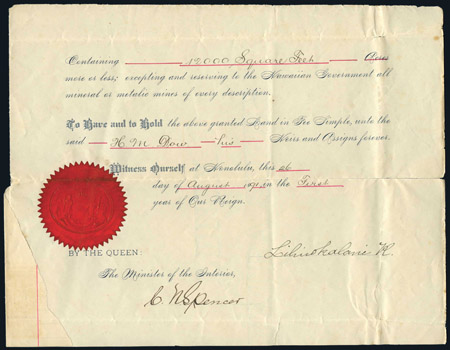 Containing 12000 Square Feet Acres
more or less; excepting and reserving to the Hawaiian Government all
mineral or metalic mines of every description.
To Have and to Hold the above granted Land in Fee Simple, unto the
said H. M. Dow his Heirs and Assigns forever.
Witness Ourself at Honolulu, this 26
day of August 1891, in the First
year of Our Reign.
BY THE QUEEN:
Liliuokalani R.
The Minister of the Interior,
C. N. Spencer